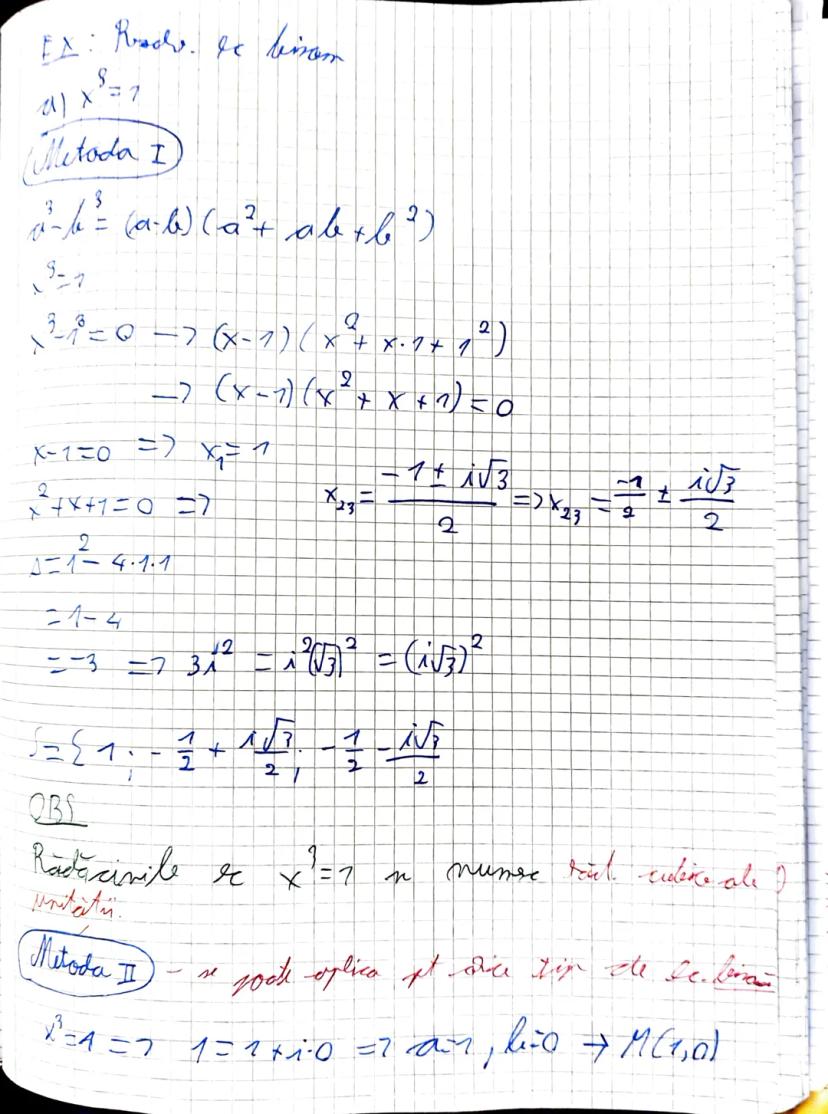 EX: Rezolv. ec binom
a) x³=1
Metoda I
a³-b³= (a-b)(a²+ ab+b²)
x³=1
x³-1³=0 → (x-1)(x²+ x·1+ 1²)
→ (x-1)(x²+ x +1)=0
x-1=0 => x₁= 1
x²+x+1=0 => x₂₃= (-1± i√3)/2 => x₂₃ = -1/2 ± i√3/2
Δ=1²- 4·1·1
=1-4
=-3 => 3i² = i²(√3)² = (i√3)²
S={ 1 ; -1/2 + i√3/2 ; -1/2 - i√3/2
OBS
Rădăcinile ec x³=1 s numesc răd. cubice ale
unității.
Metoda II - se poate aplica pt orice tip de ec. binom
x³=1 => 1=1+i·0 => a=1, b=0 → M(1,0)